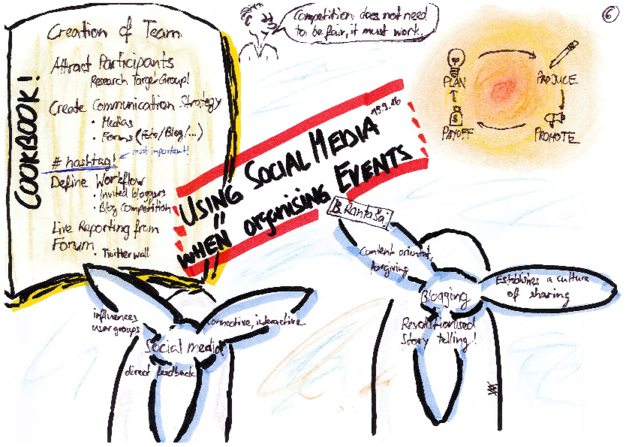 6
Competition does not need
to be fair, it must work.
COOKBOOK!
Creation of Team
Attract Participants
Research Target Group!
Create Communication Strategy
• Medias
• Forums (Foto/Blog/...)
# hashtag!
most important!
Define Workflow
• Invited bloggers
• Blog Competition
Live Reporting from
Forum
• Twitterwall
PLAN
PRODUCE
PROMOTE
PAYOFF
USING SOCIAL MEDIA
WHEN organising EVENTS
B. Rantaša
influences
user groups
connective, interactive
Social media
direct feedback
Content oriented,
forgiving
Blogging
Establishes a culture
of sharing
Revolutionised
Story telling!